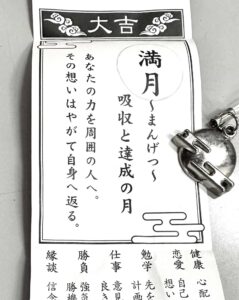 大吉
満月～まんげつ～
吸収と達成の月
あなたの力を周囲の人へ。
その想いはやがて自身へ返る。
健康 心配
恋愛 自己 想い
勉学 先を 計画
仕事 意見 良き
勝負 強気 勝機
縁談 信念